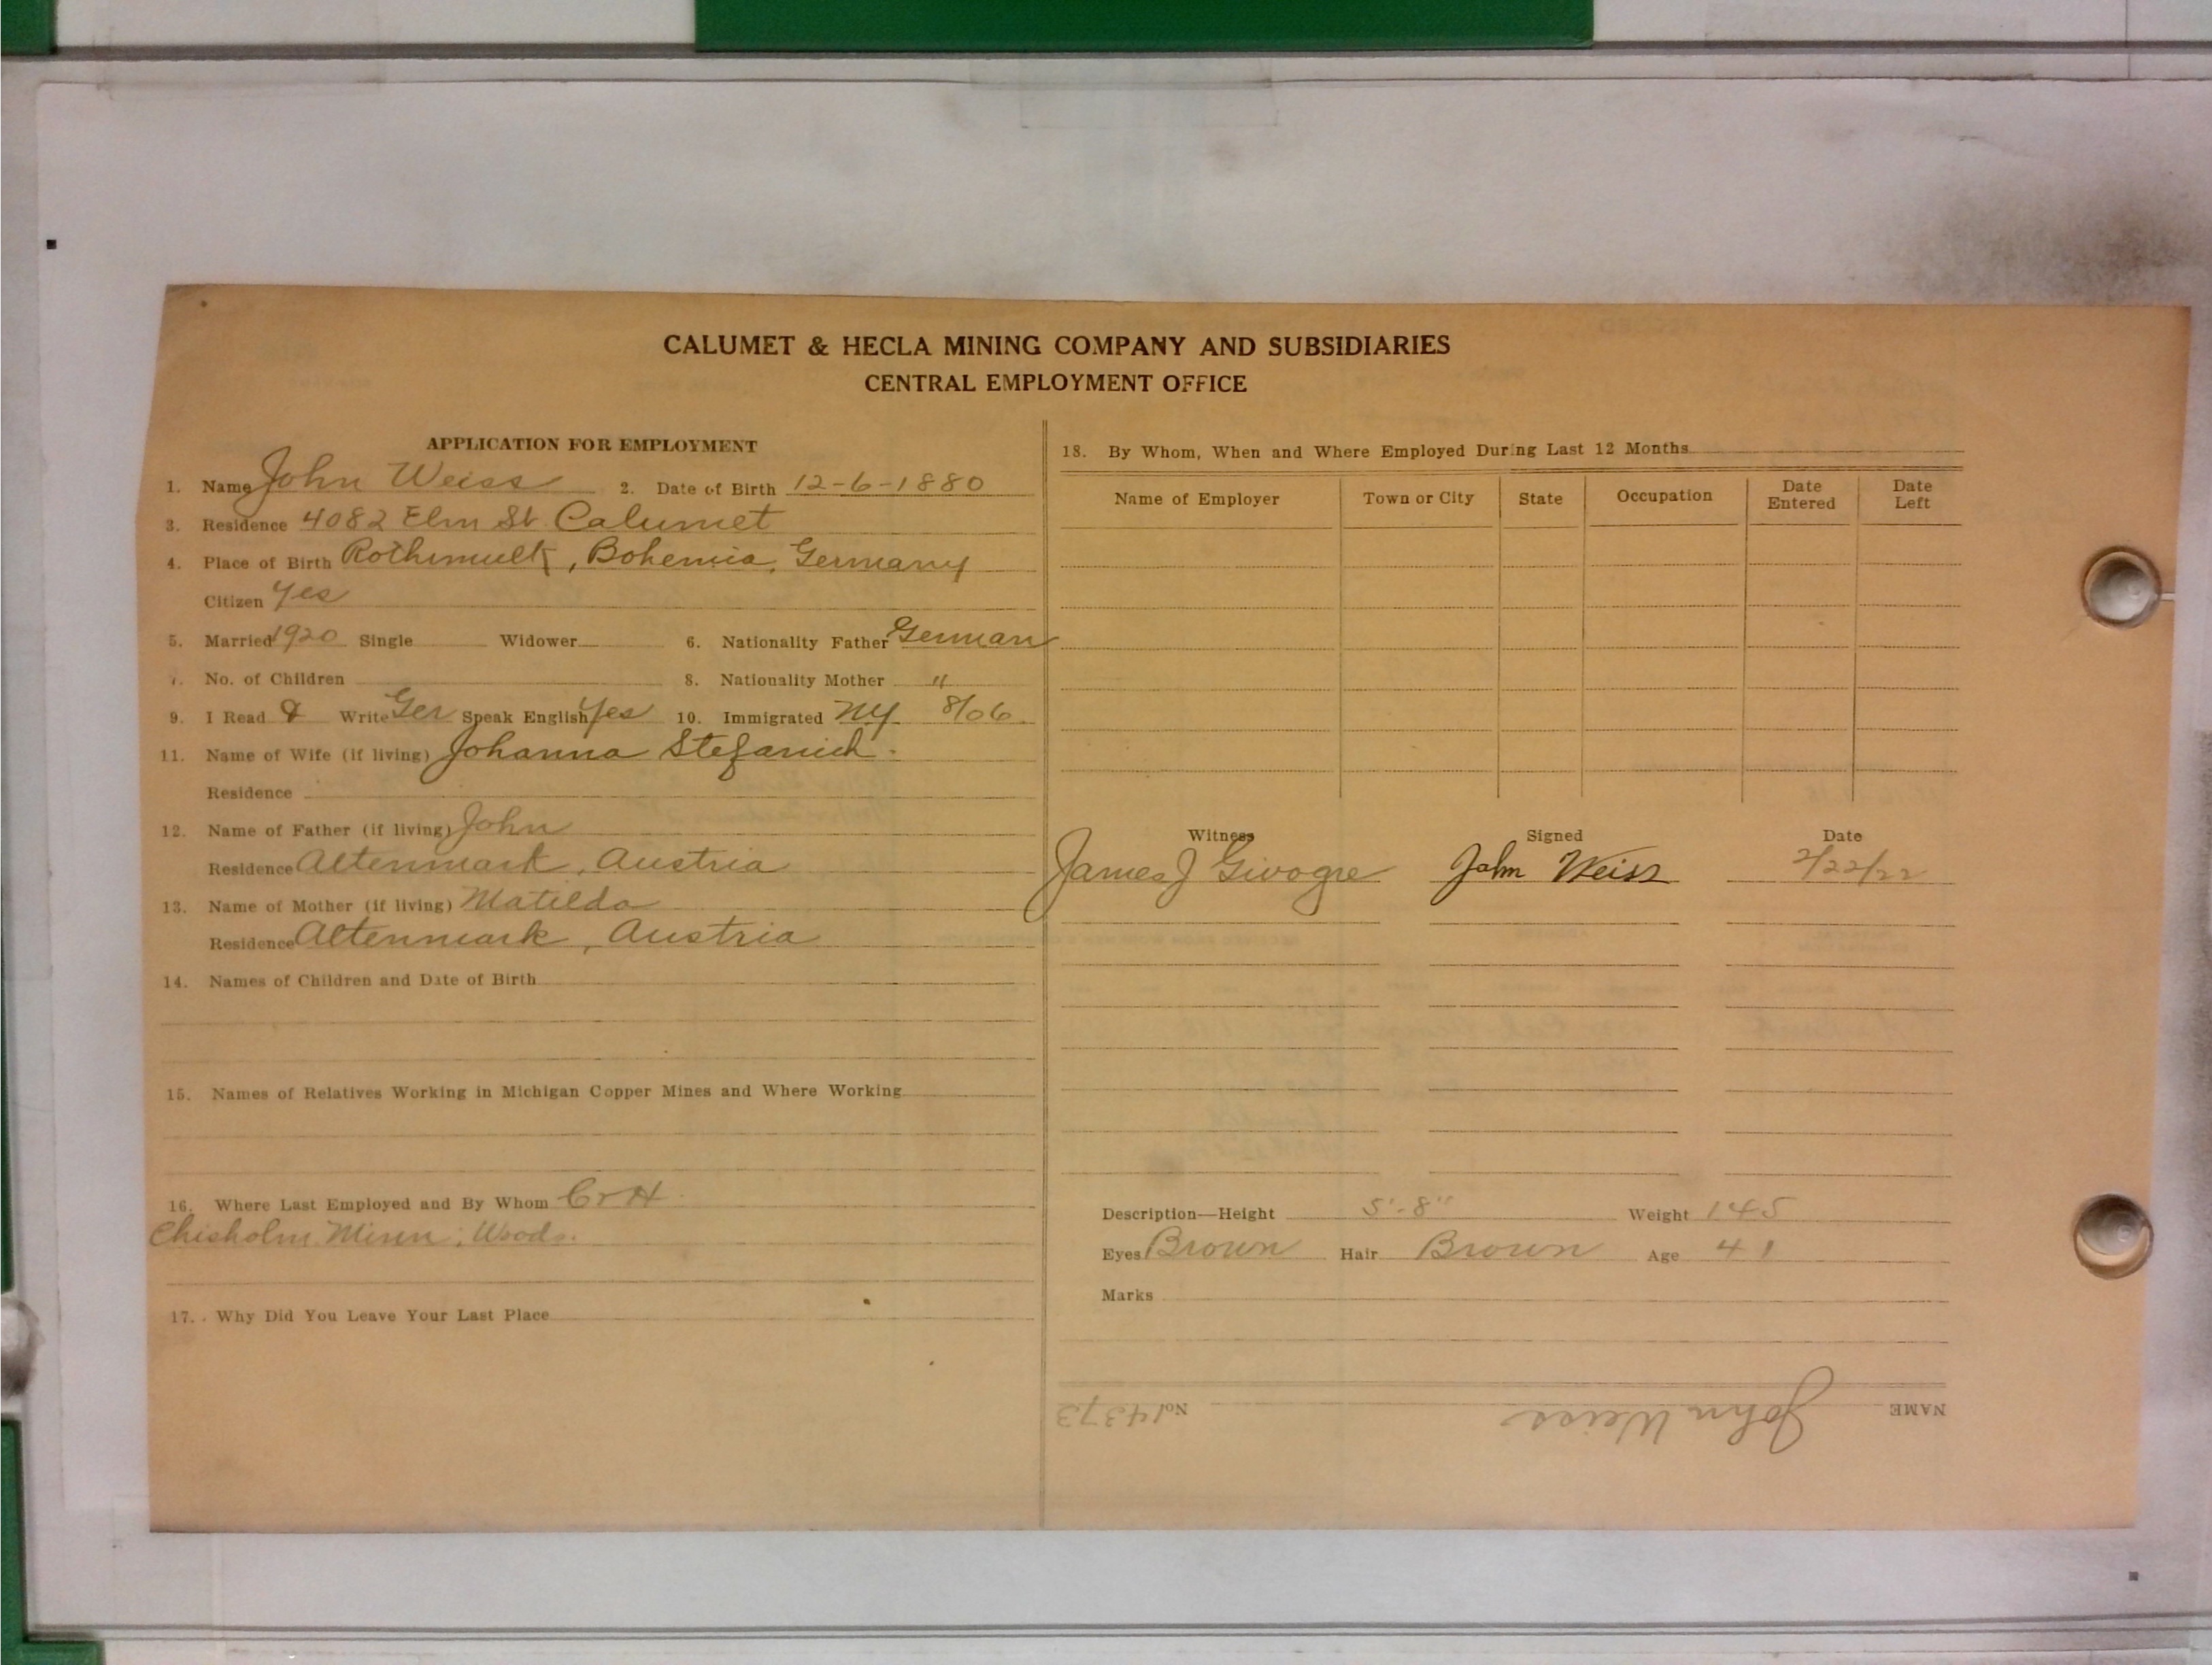 CALUMET & HECLA MINING COMPANY AND SUBSIDIARIES
CENTRAL EMPLOYMENT OFFICE
APPLICATION FOR EMPLOYMENT
1. Name John Weiss 2. Date of Birth 12-6-1880
3. Residence 4082 Elm St Calumet
4. Place of Birth , Bohemia, Germany
Citizen Yes
5. Married 1920 Single Widower 6. Nationality Father German
7. No. of Children 8. Nationality Mother "
9. I Read & Write Ger Speak English Yes 10. Immigrated NY 8/06
11. Name of Wife (if living) Johanna Stefanich
Residence
12. Name of Father (if living) John
Residence Altenmark, Austria
13. Name of Mother (if living) Matilda
Residence Altenmark, Austria
14. Names of Children and Date of Birth
15. Names of Relatives Working in Michigan Copper Mines and Where Working
16. Where Last Employed and By Whom C & H
Chisholm Minn; Woods.
17. Why Did You Leave Your Last Place
18. By Whom, When and Where Employed During Last 12 Months
Name of Employer Town or City State Occupation Date Entered Date Left
Witness Signed Date
James J John Weiss 2/22/22
Description—Height 5'-8" Weight 145
Eyes Brown Hair Brown Age 41
Marks
NAME John Weiss No. 14373